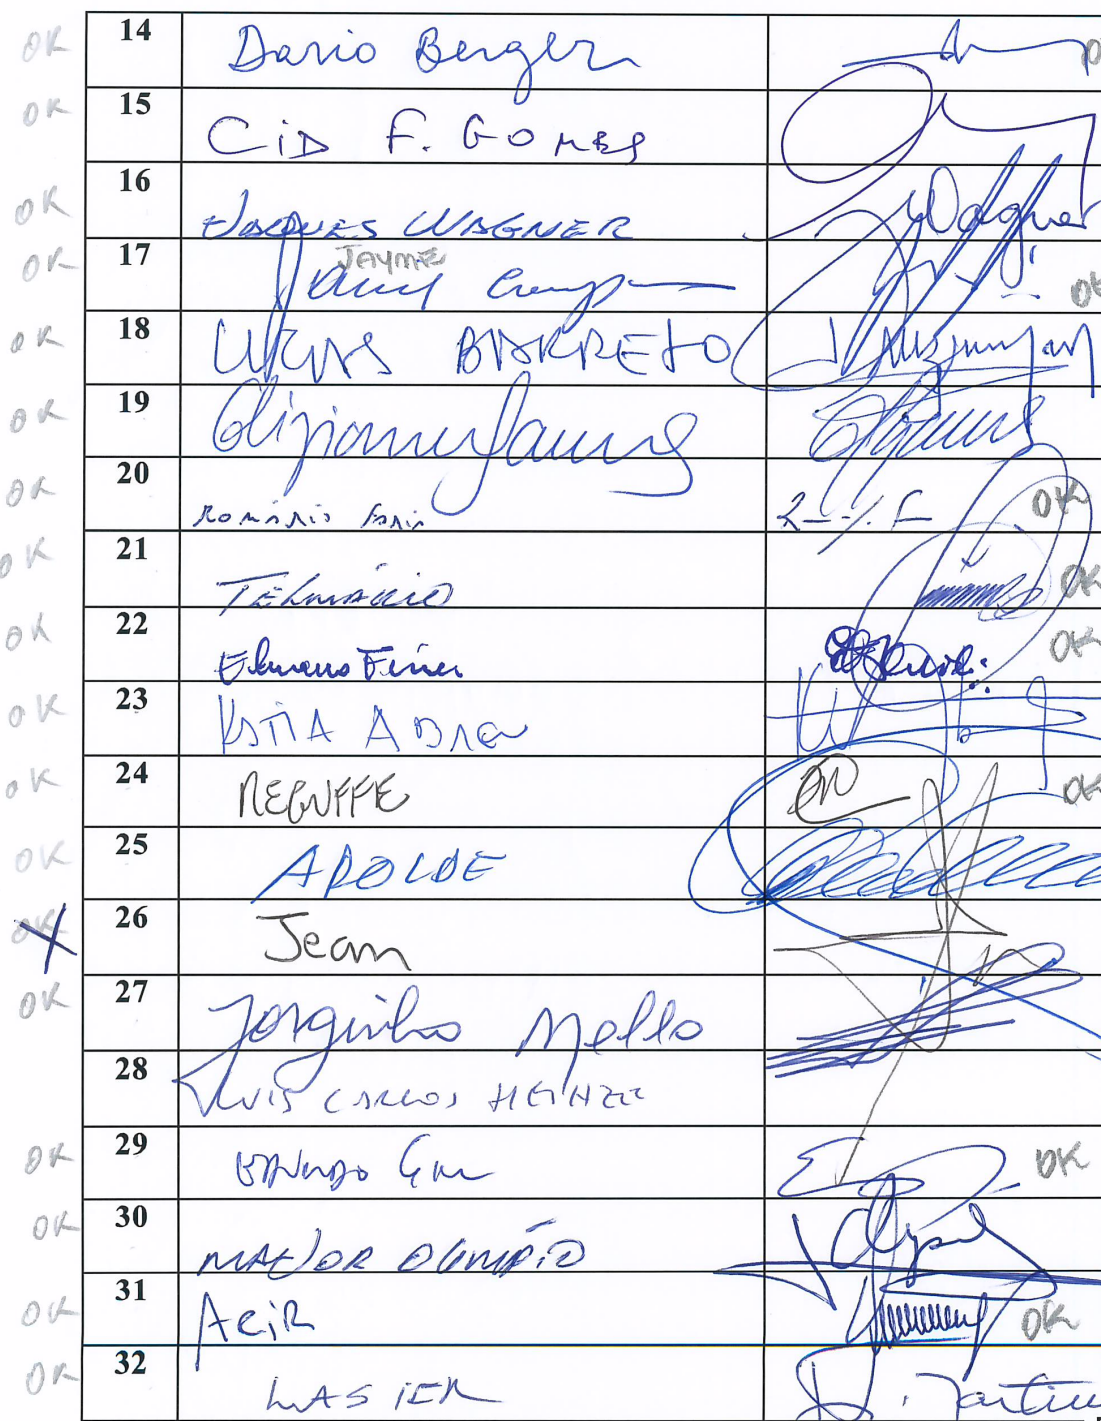 OK 14 Dario Berger
OK 15 CiD F. GOMES
OK 16 JAQUES WAGNER Wagner
OK 17 JAYME OK
OK 18 LUCAS BARRETO
OK 19
OK 20 ROMÁRIO FARIA OK
OK 21 TELMÁRIO OK
OK 22 Elmano Férrer OK
OK 23 KÁTIA ABREU
OK 24 REGUFFE OK
OK 25 AROLDE
OK 26 Jean
OK 27 Jorginho Mello
28 LUIS CARLOS HEINZE
OK 29 OK
OK 30 MAJOR OLIMPIO
OK 31 AciR OK
OK 32 LASIER Martins